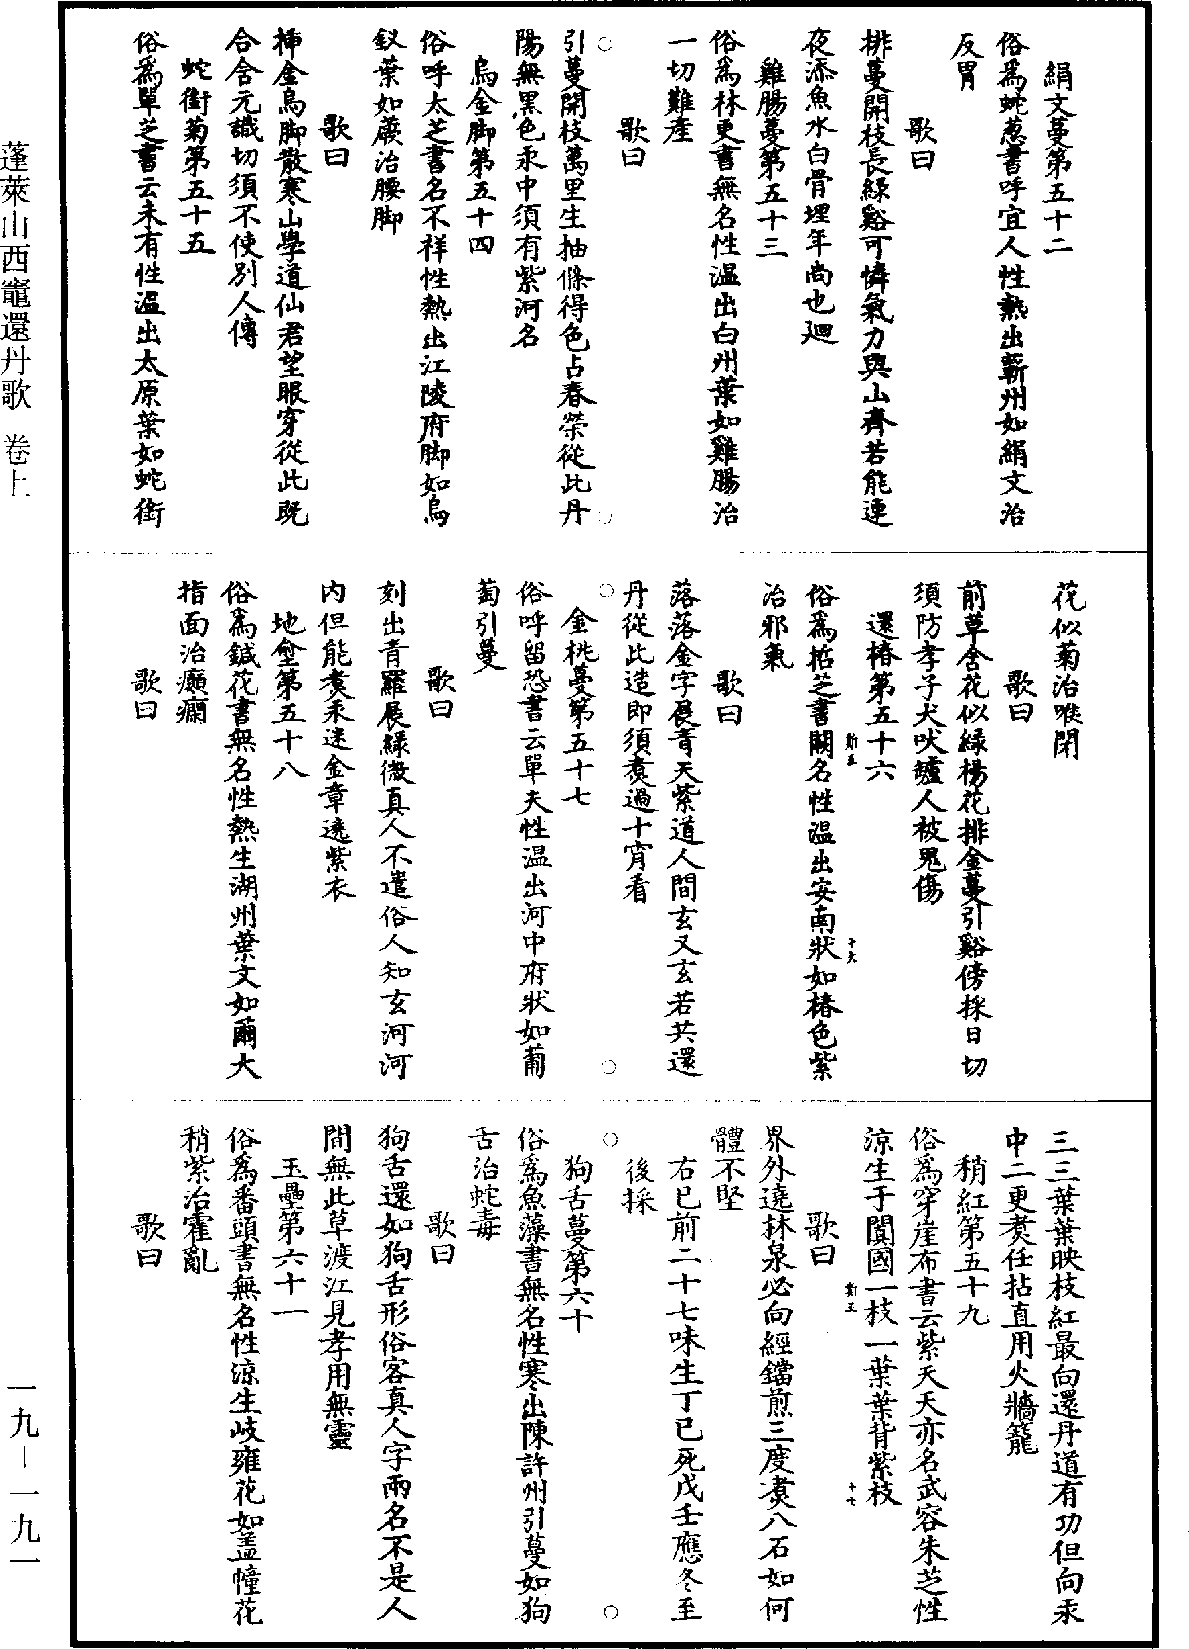 絹文蔓第五十二
俗爲蛇葱書呼宜人性熱出蘄州如絹文治
反胃
歌曰
排蔓開枝長緑谿可憐氣力與山齊若能連
夜添魚水白骨埋年尚也廻
雞腸蔓第五十三
俗爲林更書無名性溫出白州葉如雞腸治
一切難產
歌曰
引蔓開枝萬里生抽條得色占春榮從此丹
陽無黑色汞中須有紫河名
烏金脚第五十四
俗呼太芝書名不祥性熱出江陵府脚如烏
釵葉如薐治腰脚
歌曰
揷金烏脚散寒山學道仙君望眼穿從此旣
合含元讖切須不使別人傳
蛇銜菊第五十五
俗爲單芝書云未有性溫出太原葉如蛇銜
花似菊治喉閉
歌曰
前草含花似緑楊花排金蔓引谿傍採日切
須防孝子犬吠鑪人被鬼傷
還椿第五十六
俗爲拈芝書闕名性溫出安南狀如椿色紫
治邪氣
歌曰
落落金字展青天紫道人間玄又玄若共還
丹從此造即須煑過十宵看
金桃蔓第五十七
俗呼留恐書云單夫性溫出河中府狀如蔔
萄引蔓
歌曰
刻出青羅展緑微真人不遣俗人知玄河河
内但能煑汞迷金章遶紫衣
地㙛第五十八
俗爲鍼花書無名性熱生湖州葉文如薾大
指面治癲癇
歌曰
三三葉葉映枝紅最向還丹道有功但向汞
中二更煑任拈直用火牆籠
稍紅第五十九
俗爲穿崖布書云紫天天亦名武容朱芝性
涼生于闐國一枝一葉葉背紫枝
歌曰
界外遶林泉必向經鐺煎三度煑八石如何
體不堅
右已前二十七味生丁巳死戊壬應冬至
後採
狗舌蔓第六十
俗爲魚藻書無名性寒出陳許州引蔓如狗
舌治蛇毒
歌曰
狗舌還如狗舌形俗客真人字兩名不是人
間無此草渡江見孝用無靈
玉壘第六十一
俗爲番頭書無名性涼生岐雍花如盖幢花
稍紫治霍亂
歌曰
蓬萊山西竈還丹歌 卷上
一九－一九一